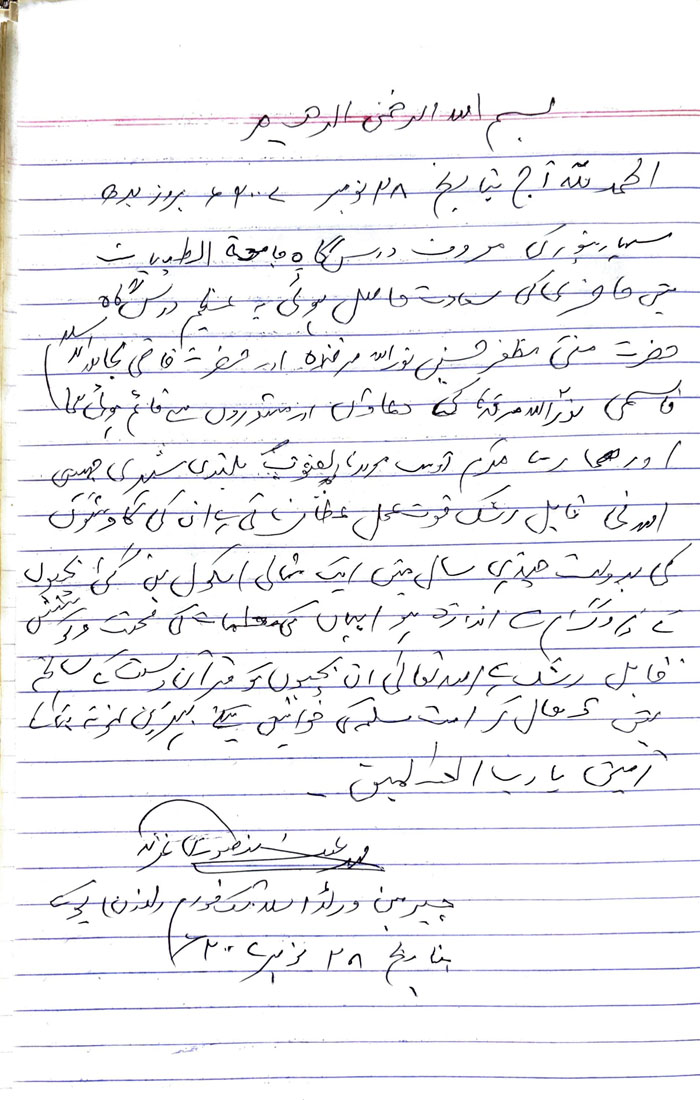 بسم اللہ الرحمٰن الرحیم
الحمد للہ آج بتاریخ ۲۸ نومبر ۲۰۰۷ء بروز بدھ
سہارنپور کی معروف درس گاہ جامعۃ الطیبات
میں حاضری کی سعادت حاصل ہوئی یہ عظیم درس گاہ
حضرت مفتی مظفر حسین نور اللہ مرقدہ اور حضرت قاضی مجاہد الاسلام
قاسمی نور اللہ مرقدہ کی دعاوں اور مشوروں سے قائم ہوئی
اور ہمارے مکرم دوست مولانا یعقوب بلندی شہری جیسی
اللہ نے قابل رشک قوت عمل عطا کی ہے ان کی کاوشوں
کی بدولت چند ہی سال میں ایک مثالی اسکول بن گئی بچیوں
کے پروگرام سے اندازہ ہوا یہاں کی معلمات کی محنت و کوشش
قابل رشک ہے اللہ تعالیٰ ان بچیوں کو قرآن و سنت کے سانچے
میں ڈھال کر امت مسلمہ کی خواتین کیلئے بہترین نمونہ بنائے
آمین یا رب العالمین۔
محمد عیسیٰ منصوری غفرلہ
چیرمین ورلڈ اسلامک فورم لندن یوکے
بتاریخ ۲۸ نومبر ۲۰۰۷